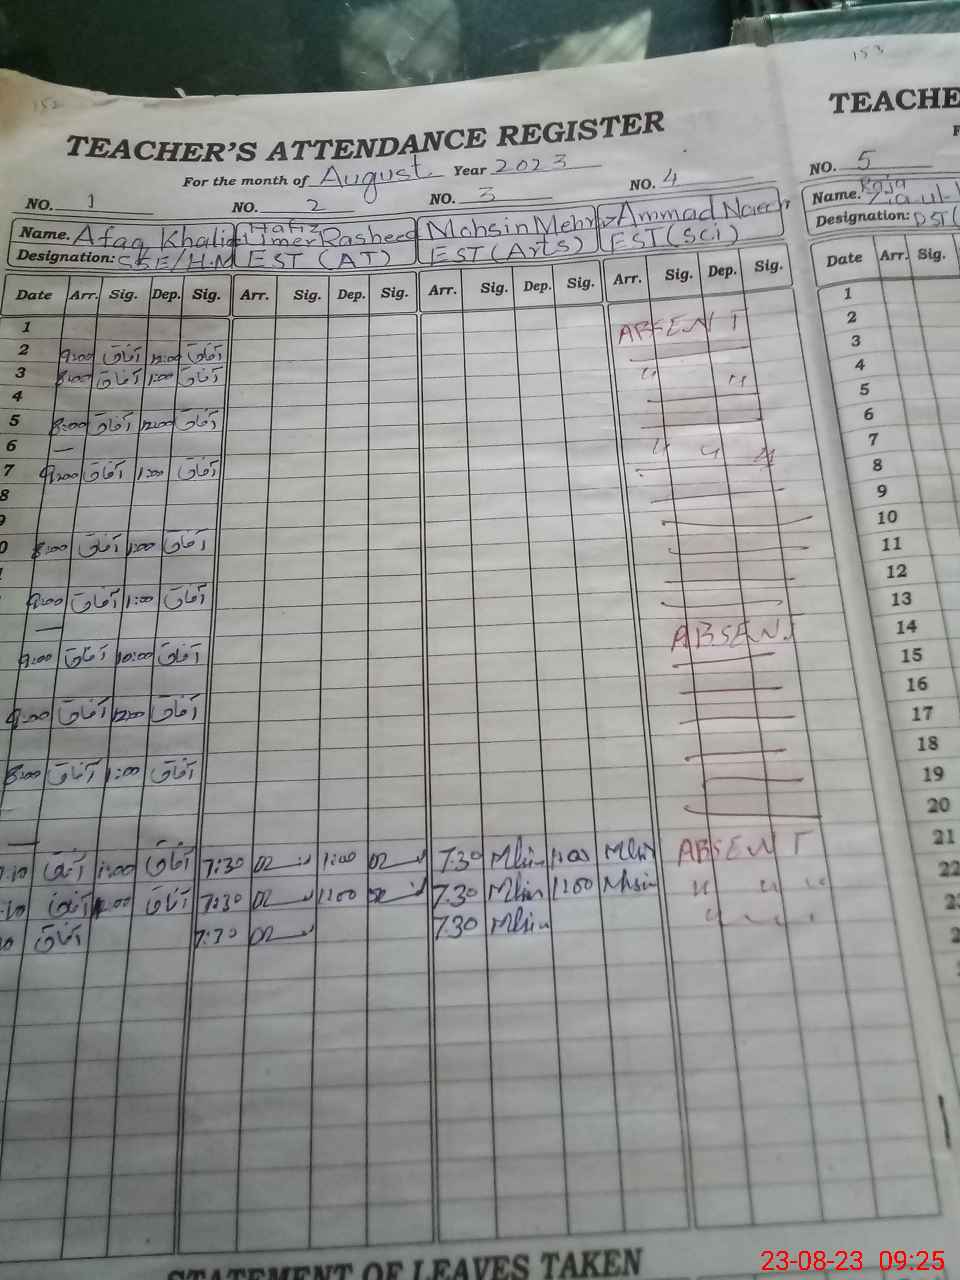 152
153
TEACHER'S ATTENDANCE REGISTER
TEACHE
For the month of August Year 2023
NO. 1 NO. 2 NO. 3 NO. 4
NO. 5
Name. Afaq Khalid Hafiz Umer Rasheed Mohsin Mehr Ammad
Name. Raja
Designation: SSE/H.M EST (AT) EST (Arts) EST (Sci)
Designation: DST(
Date Arr. Sig. Dep. Sig. Arr. Sig. Dep. Sig. Arr. Sig. Dep. Sig. Arr. Sig. Dep. Sig.
Date Arr. Sig.
1 ABSENT
2 9:00 آفاق 12:00 آفاق
3 8:00 آفاق 1:00 آفاق " "
4
5 8:00 آفاق 12:00 آفاق
6 — " " "
7 9:00 آفاق 1:00 آفاق
8
9
0 8:00 آفاق 1:00 آفاق
9:00 آفاق 1:00 آفاق
—
9:00 آفاق 10:00 آفاق ABSENT
9:00 آفاق 12:00 آفاق
8:00 آفاق 1:00 آفاق
—
7:10 آفاق 1:00 آفاق 7:30 1:00 7:30 Mhsin 1:00 Mhsin ABSENT
:10 آفاق 1:00 آفاق 7:30 1:00 7:30 Mhsin 1:00 Mhsin " " "
آفاق 7:30 7:30 Mhsin "
1
2
3
4
5
6
7
8
9
10
11
12
13
14
15
16
17
18
19
20
21
22
23
2
STATEMENT OF LEAVES TAKEN
23-08-23 09:25